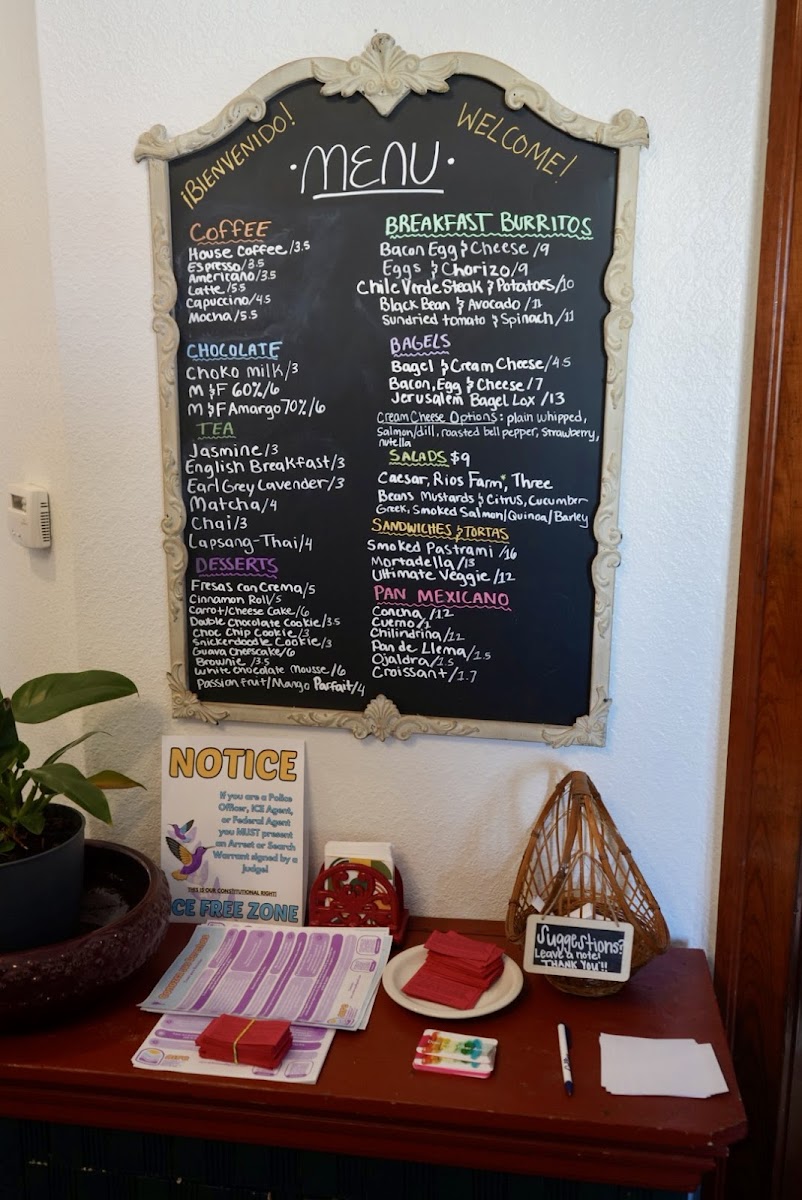 ¡BIENVENIDO!
WELCOME!
·MENU·
COFFEE
House Coffee/3.5
Espresso/3.5
Americano/3.5
Latte/5.5
Capuccino/4.5
Mocha/5.5
CHOCOLATE
Choko milk/3
M&F 60%/6
M&F Amargo 70%/6
TEA
Jasmine/3
English Breakfast/3
Earl Grey Lavender/3
Matcha/4
Chai/3
Lapsang-Thai/4
DESSERTS
Fresas con Crema/5
Cinnamon Roll/5
Carrot/Cheese Cake/6
Double Chocolate Cookie/3.5
Choc Chip Cookie/3
Snickerdoodle Cookie/3
Guava Cheescake/6
Brownie/3.5
White Chocolate Mousse/6
Passion fruit/Mango Parfait/4
BREAKFAST BURRITOS
Bacon Egg & Cheese/9
Eggs & Chorizo/9
Chile Verde Steak & Potatoes/10
Black Bean & Avocado/11
Sundried tomato & Spinach/11
BAGELS
Bagel & Cream Cheese/4.5
Bacon, Egg & Cheese/7
Jerusalem Bagel Lox/13
Cream Cheese Options: plain whipped,
Salmon/dill, roasted bell pepper, Strawberry,
nutella
SALADS $9
Caesar, Rios Farm, Three
Beans Mustards & Citrus, Cucumber
Greek, Smoked Salmon/Quinoa/Barley
SANDWICHES & TORTAS
Smoked Pastrami/16
Mortadella/13
Ultimate Veggie/12
PAN MEXICANO
Concha/1.2
Cuerno/1
Chilindrina/1.2
Pan de Llema/1.5
Ojaldra/1.5
Croissant/1.7
NOTICE
If you are a Police
Officer, ICE Agent,
or Federal Agent
you MUST present
an Arrest or Search
Warrant signed by a
judge!
THIS IS OUR CONSTITUTIONAL RIGHT!
ICE FREE ZONE
Suggestions?
Leave a note!
THANK YOU!!